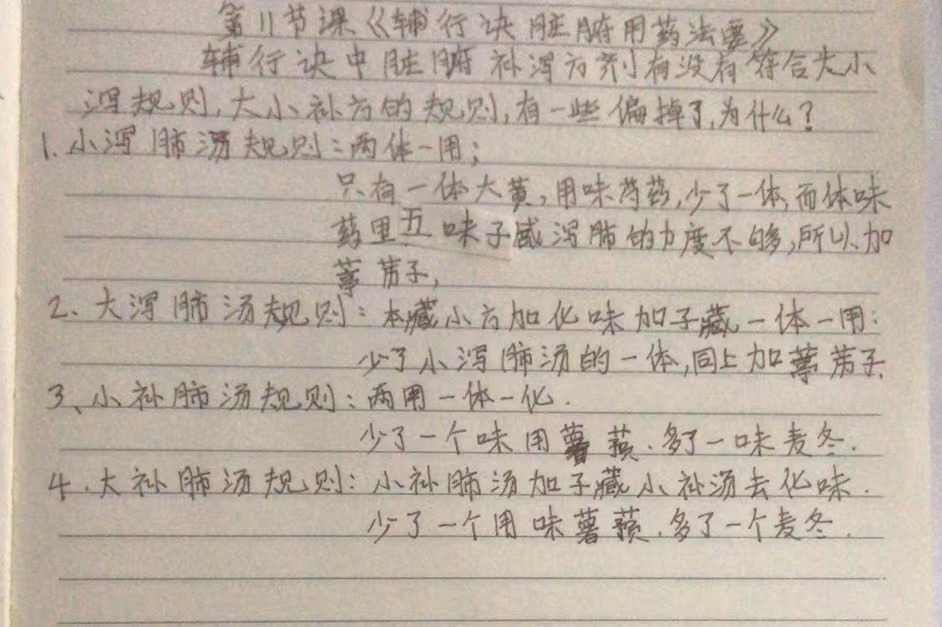 第11节课《辅行诀脏腑用药法要》
辅行诀中脏腑补泻方剂有没有符合大小
泻规则,大小补方的规则,有一些偏掉了,为什么?
1.小泻肺汤规则:两体一用;
只有一体大黄,用味芍药,少了一体,而体味
药里五味子感泻肺的力度不够,所以加
葶苈子,
2、大泻肺汤规则:本藏小方加化味加子藏一体一用.
少了小泻肺汤的一体,同上加葶苈子
3、小补肺汤规则:两用一体一化.
少了一个味用薯蓣.多了一味麦冬.
4.大补肺汤规则:小补肺汤加子藏小补汤去化味.
少了一个用味薯蓣.多了一个麦冬.